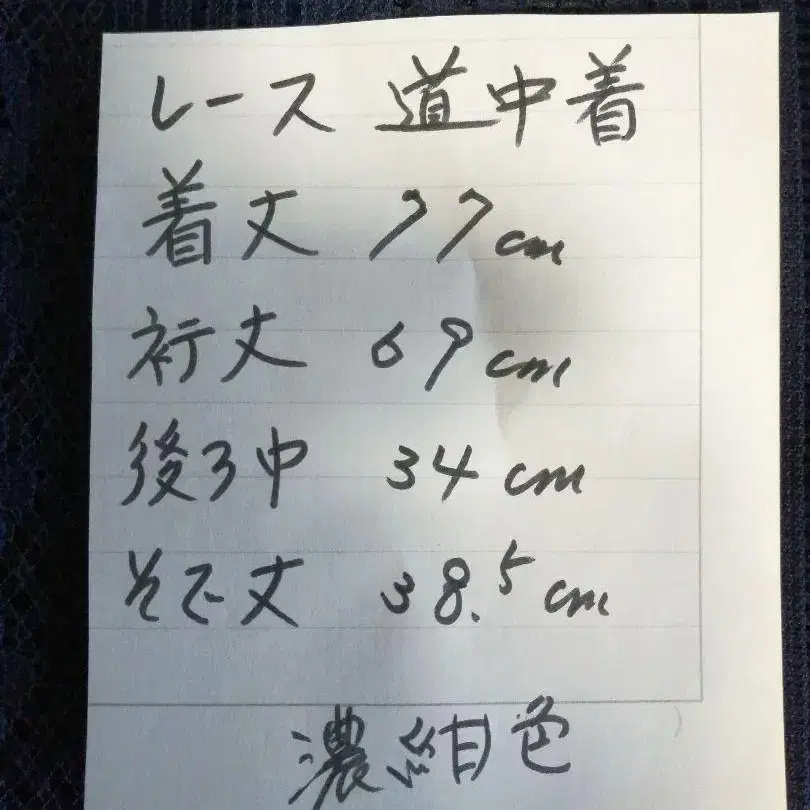 レース 道中着
着丈 77cm
裄丈 69cm
後ろ中 34cm
そで丈 38.5cm
濃紺色